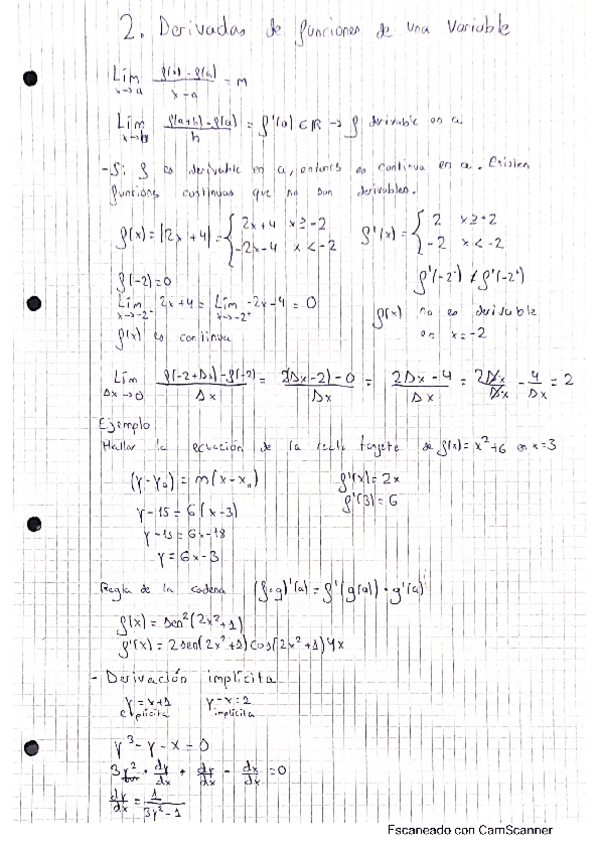 2. Derivadas de funciones de una variable
Lím x→a (f(x) - f(a))/(x-a) = m
Lím (f(a+h) - f(a))/h = f'(a) ∈ ℝ → f derivable en a.
- Si f es derivable en a, entonces es continua en a. Existen
funciones continuas que no son derivables.
f(x) = |2x+4| = { 2x+4 x ≥ -2 f'(x) = { 2 x ≥ -2
-2x-4 x < -2 -2 x < -2
f(-2) = 0 f'(-2⁻) ≠ f'(-2⁺)
Lím x→-2⁻ 2x+4 = Lím x→-2⁺ -2x-4 = 0 f(x) no es derivable
f(x) es continua en x = -2
Lím Δx→0 (f(-2+Δx) - f(-2))/Δx = (2(Δx-2) - 0)/Δx = (2Δx - 4)/Δx = 2Δx/Δx - 4/Δx = 2
Ejemplo
Hallar la ecuación de la recta tangete de f(x) = x²+6 en x=3
(y-y₀) = m(x-x₀) f'(x) = 2x
y-15 = 6(x-3) f'(3) = 6
y-15 = 6x-18
y = 6x-3
Regla de la cadena (f∘g)'(a) = f'(g(a)) · g'(a)
f(x) = sen²(2x²+1)
f'(x) = 2sen(2x²+1)cos(2x²+1)4x
- Derivación implícita
y = x+1 y-x = 2
explícita implícita
y³ - y - x = 0
3y² · dy/dx + dy/dx - dx/dx = 0
dy/dx = 1/(3y²-1)
Escaneado con CamScanner